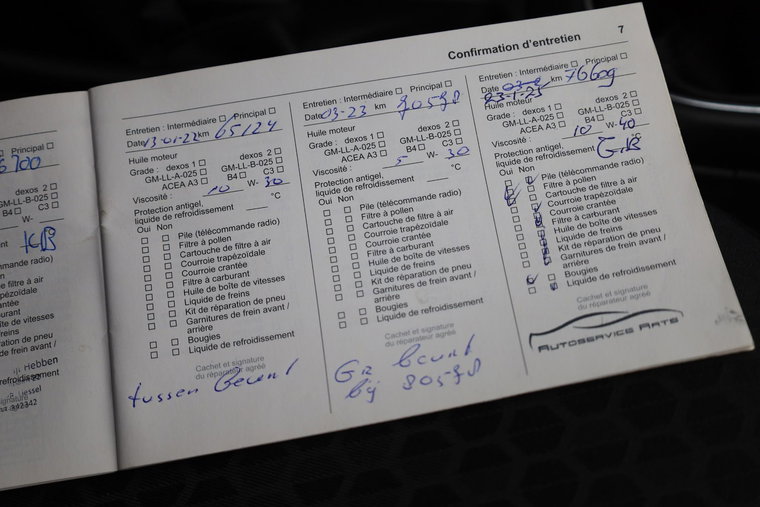 7
Confirmation d'entretien
Principal
dexos 2
GM-LL-B-025
B4 C3
W-
mande radio)
de filtre à air
pézoïdale
tée
rant
de vitesses
ins
ation de pneu
de frein avant /
refroidissement
Hebben
Entretien : Intermédiaire Principal
Date 13-01-22 km 65124
Huile moteur
Grade : dexos 1 dexos 2
GM-LL-A-025 GM-LL-B-025
ACEA A3 B4 C3
Viscosité : 10 W- 30
Protection antigel,
liquide de refroidissement °C
Oui Non
Pile (télécommande radio)
Filtre à pollen
Cartouche de filtre à air
Courroie trapézoïdale
Courroie crantée
Filtre à carburant
Huile de boîte de vitesses
Liquide de freins
Kit de réparation de pneu
Garnitures de frein avant /
arrière
Bougies
Liquide de refroidissement
Cachet et signature
du réparateur agréé
tussen beurt
Entretien : Intermédiaire Principal
Date 03-23 km 80598
Huile moteur
Grade : dexos 1 dexos 2
GM-LL-A-025 GM-LL-B-025
ACEA A3 B4 C3
Viscosité : 5 W- 30
Protection antigel,
liquide de refroidissement °C
Oui Non
Pile (télécommande radio)
Filtre à pollen
Cartouche de filtre à air
Courroie trapézoïdale
Courroie crantée
Filtre à carburant
Huile de boîte de vitesses
Liquide de freins
Kit de réparation de pneu
Garnitures de frein avant /
arrière
Bougies
Liquide de refroidissement
Cachet et signature
du réparateur agréé
beurt
bij 80598
Entretien : Intermédiaire Principal
Date km 76609
Huile moteur
Grade : dexos 1 dexos 2
GM-LL-A-025 GM-LL-B-025
ACEA A3 B4 C3
Viscosité : 10 W- 40
Protection antigel,
liquide de refroidissement °C
Oui Non
Pile (télécommande radio)
Filtre à pollen
Cartouche de filtre à air
Courroie trapézoïdale
Courroie crantée
Filtre à carburant
Huile de boîte de vitesses
Liquide de freins
Kit de réparation de pneu
Garnitures de frein avant /
arrière
Bougies
Liquide de refroidissement
Cachet et signature
du réparateur agréé
AUTOSERVICE ARTS